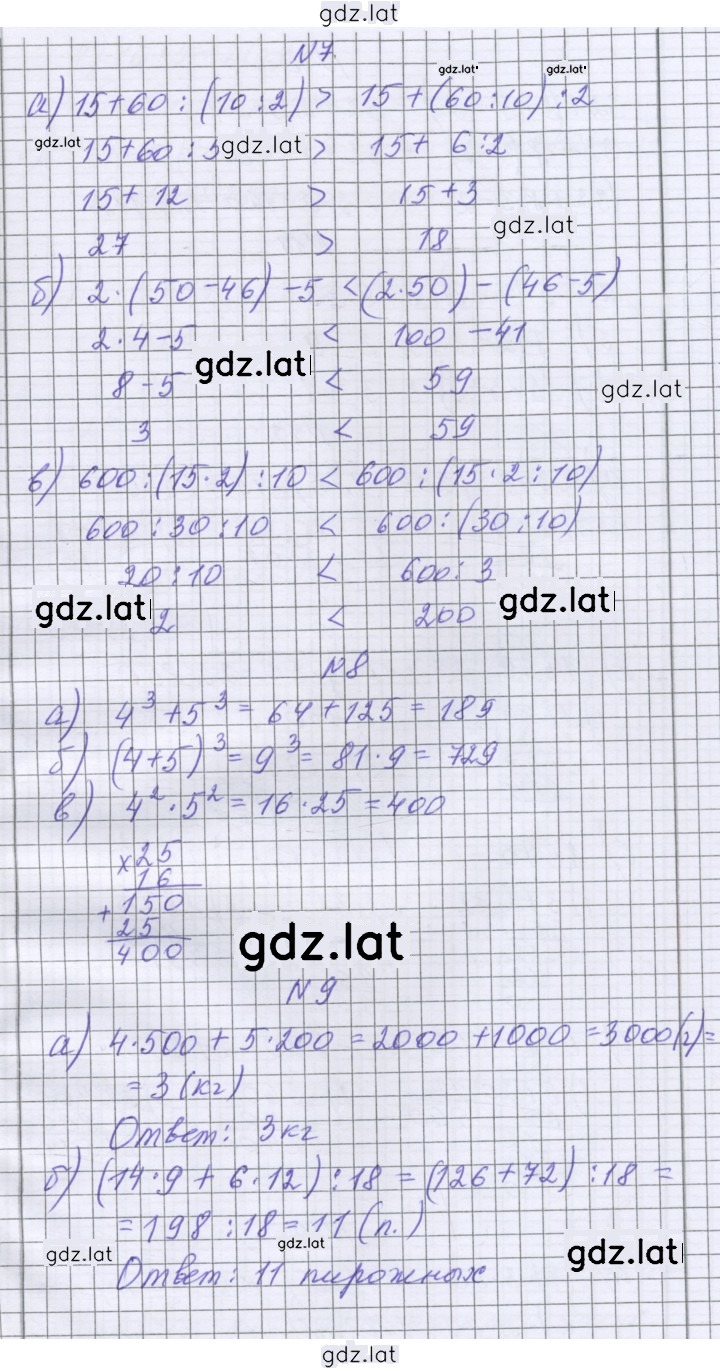 gdz.lat
N7
gdz.lat gdz.lat
а) 15+60 : (10 : 2) > 15 + (60 : 10) : 2
gdz.lat 15+60 : 5 gdz.lat > 15 + 6 : 2
15 + 12 > 15 + 3
27 > 18 gdz.lat
б) 2 · (50 - 46) - 5 < (2 · 50) - (46 - 5)
2 · 4 - 5 < 100 - 41
gdz.lat
8 - 5 < 59 gdz.lat
3 < 59
в) 600 : (15 · 2) : 10 < 600 : (15 · 2 : 10)
600 : 30 : 10 < 600 : (30 : 10)
20 : 10 < 600 : 3
gdz.lat 2 < 200 gdz.lat
N8
а) 4³ + 5³ = 64 + 125 = 189
б) (4+5)³ = 9³ = 81 · 9 = 729
в) 4² · 5² = 16 · 25 = 400
× 25
16
+ 150
25
400
gdz.lat
N9
а) 4 · 500 + 5 · 200 = 2000 + 1000 = 3000 (г) =
= 3 (кг)
Ответ: 3 кг
б) (14 · 9 + 6 · 12) : 18 = (126 + 72) : 18 =
= 198 : 18 = 11 (п.)
gdz.lat gdz.lat gdz.lat
Ответ: 11 пирожных
gdz.lat